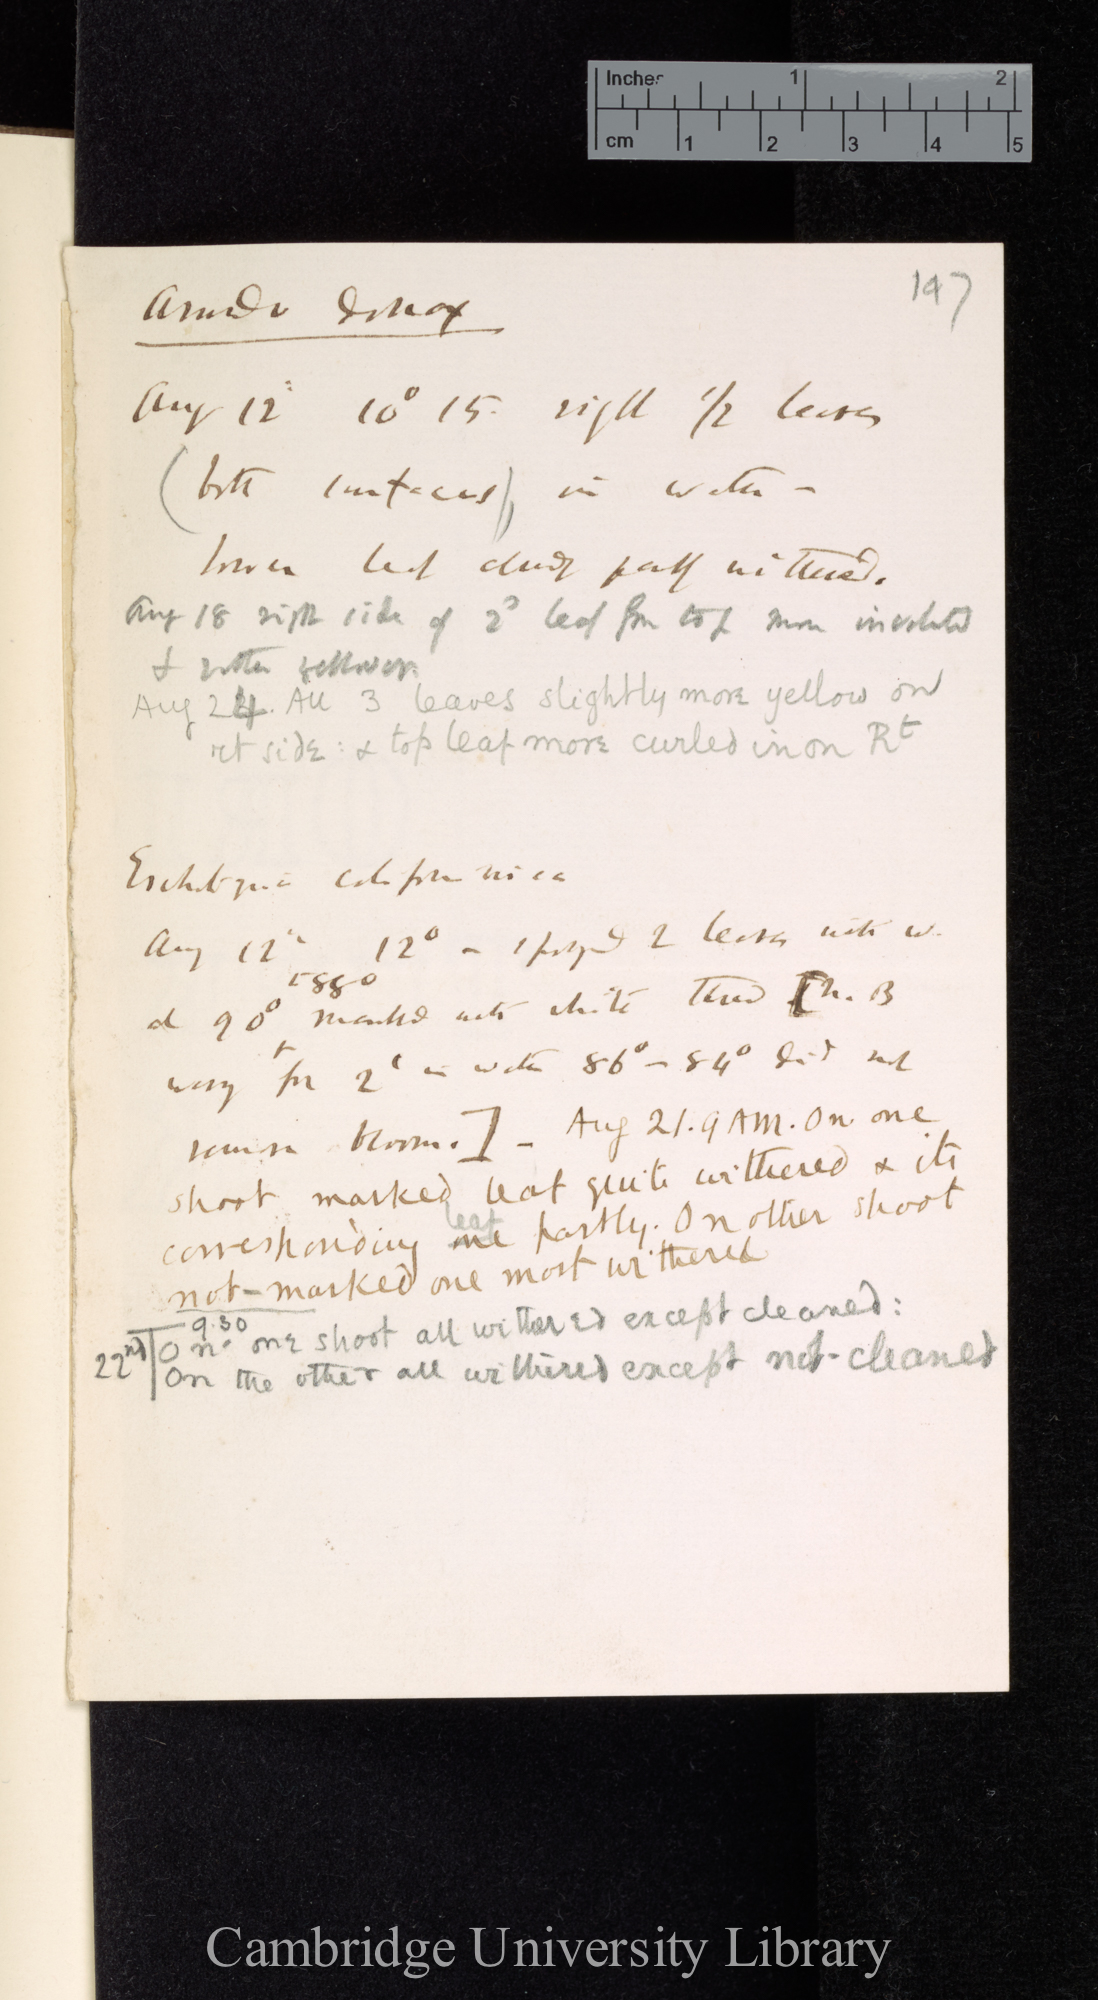 Inches 1 2
cm 1 2 3 4 5
147
Arundo donax
Aug 12th 10° 15' right 1/2 leaves
(both surfaces), in water –
lower leaf already partly withered.
Aug 18 right side of 2d leaf from top more involuted
& rather yellower.
Aug 24. All 3 leaves slightly more yellow on
rt side: & top leaf more curled in on Rt
Escholtzia californica
Aug 12th 12° – sponged 2 leaves with w.
at 90° – 88° marked with white thread [N.B
wavy for 2' in water 86° – 84° did not
remove bloom.] – Aug 21. 9 AM. On one
shoot marked leaf quite withered & its
corresponding one leaf partly. On other shoot
not-marked one most withered
22nd 9.30 On one shoot all withered except cleaned:
On the other all withered except not-cleaned
Cambridge University Library